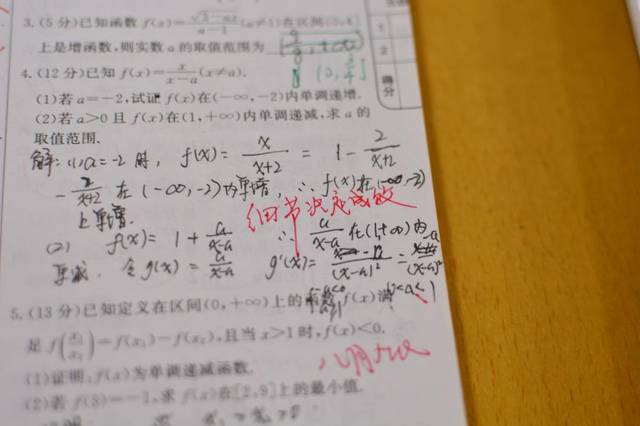 3.(5分)已知函数 f(x)=√(3-ax)/(a-1)(a≠1)在区间(0,4]
上是增函数,则实数 a 的取值范围为
4.(12分)已知 f(x)=x/(x-a)(x≠a).
(1)若 a=-2,试证 f(x)在(-∞,-2)内单调递增.
(2)若 a>0 且 f(x)在(1,+∞)内单调递减,求 a 的
取值范围.
解:(1)a=-2时, f(x)=x/(x+2)=1-2/(x+2)
-2/(x+2)在(-∞,-2)内单增,∴f(x)在(-∞,-2)
上单增.
细节决定成败
(2) f(x)=1+a/(x-a) ∵a/(x-a)在(1,+∞)内
单减. 令g(x)=a/(x-a) g'(x)=
5.(13分)已知定义在区间(0,+∞)上的函数 f(x)满
足 f(x₁/x₂)=f(x₁)-f(x₂),且当 x>1 时,f(x)<0.
(1)证明:f(x)为单调递减函数.
(2)若 f(3)=-1,求 f(x)在[2,9]上的最小值.